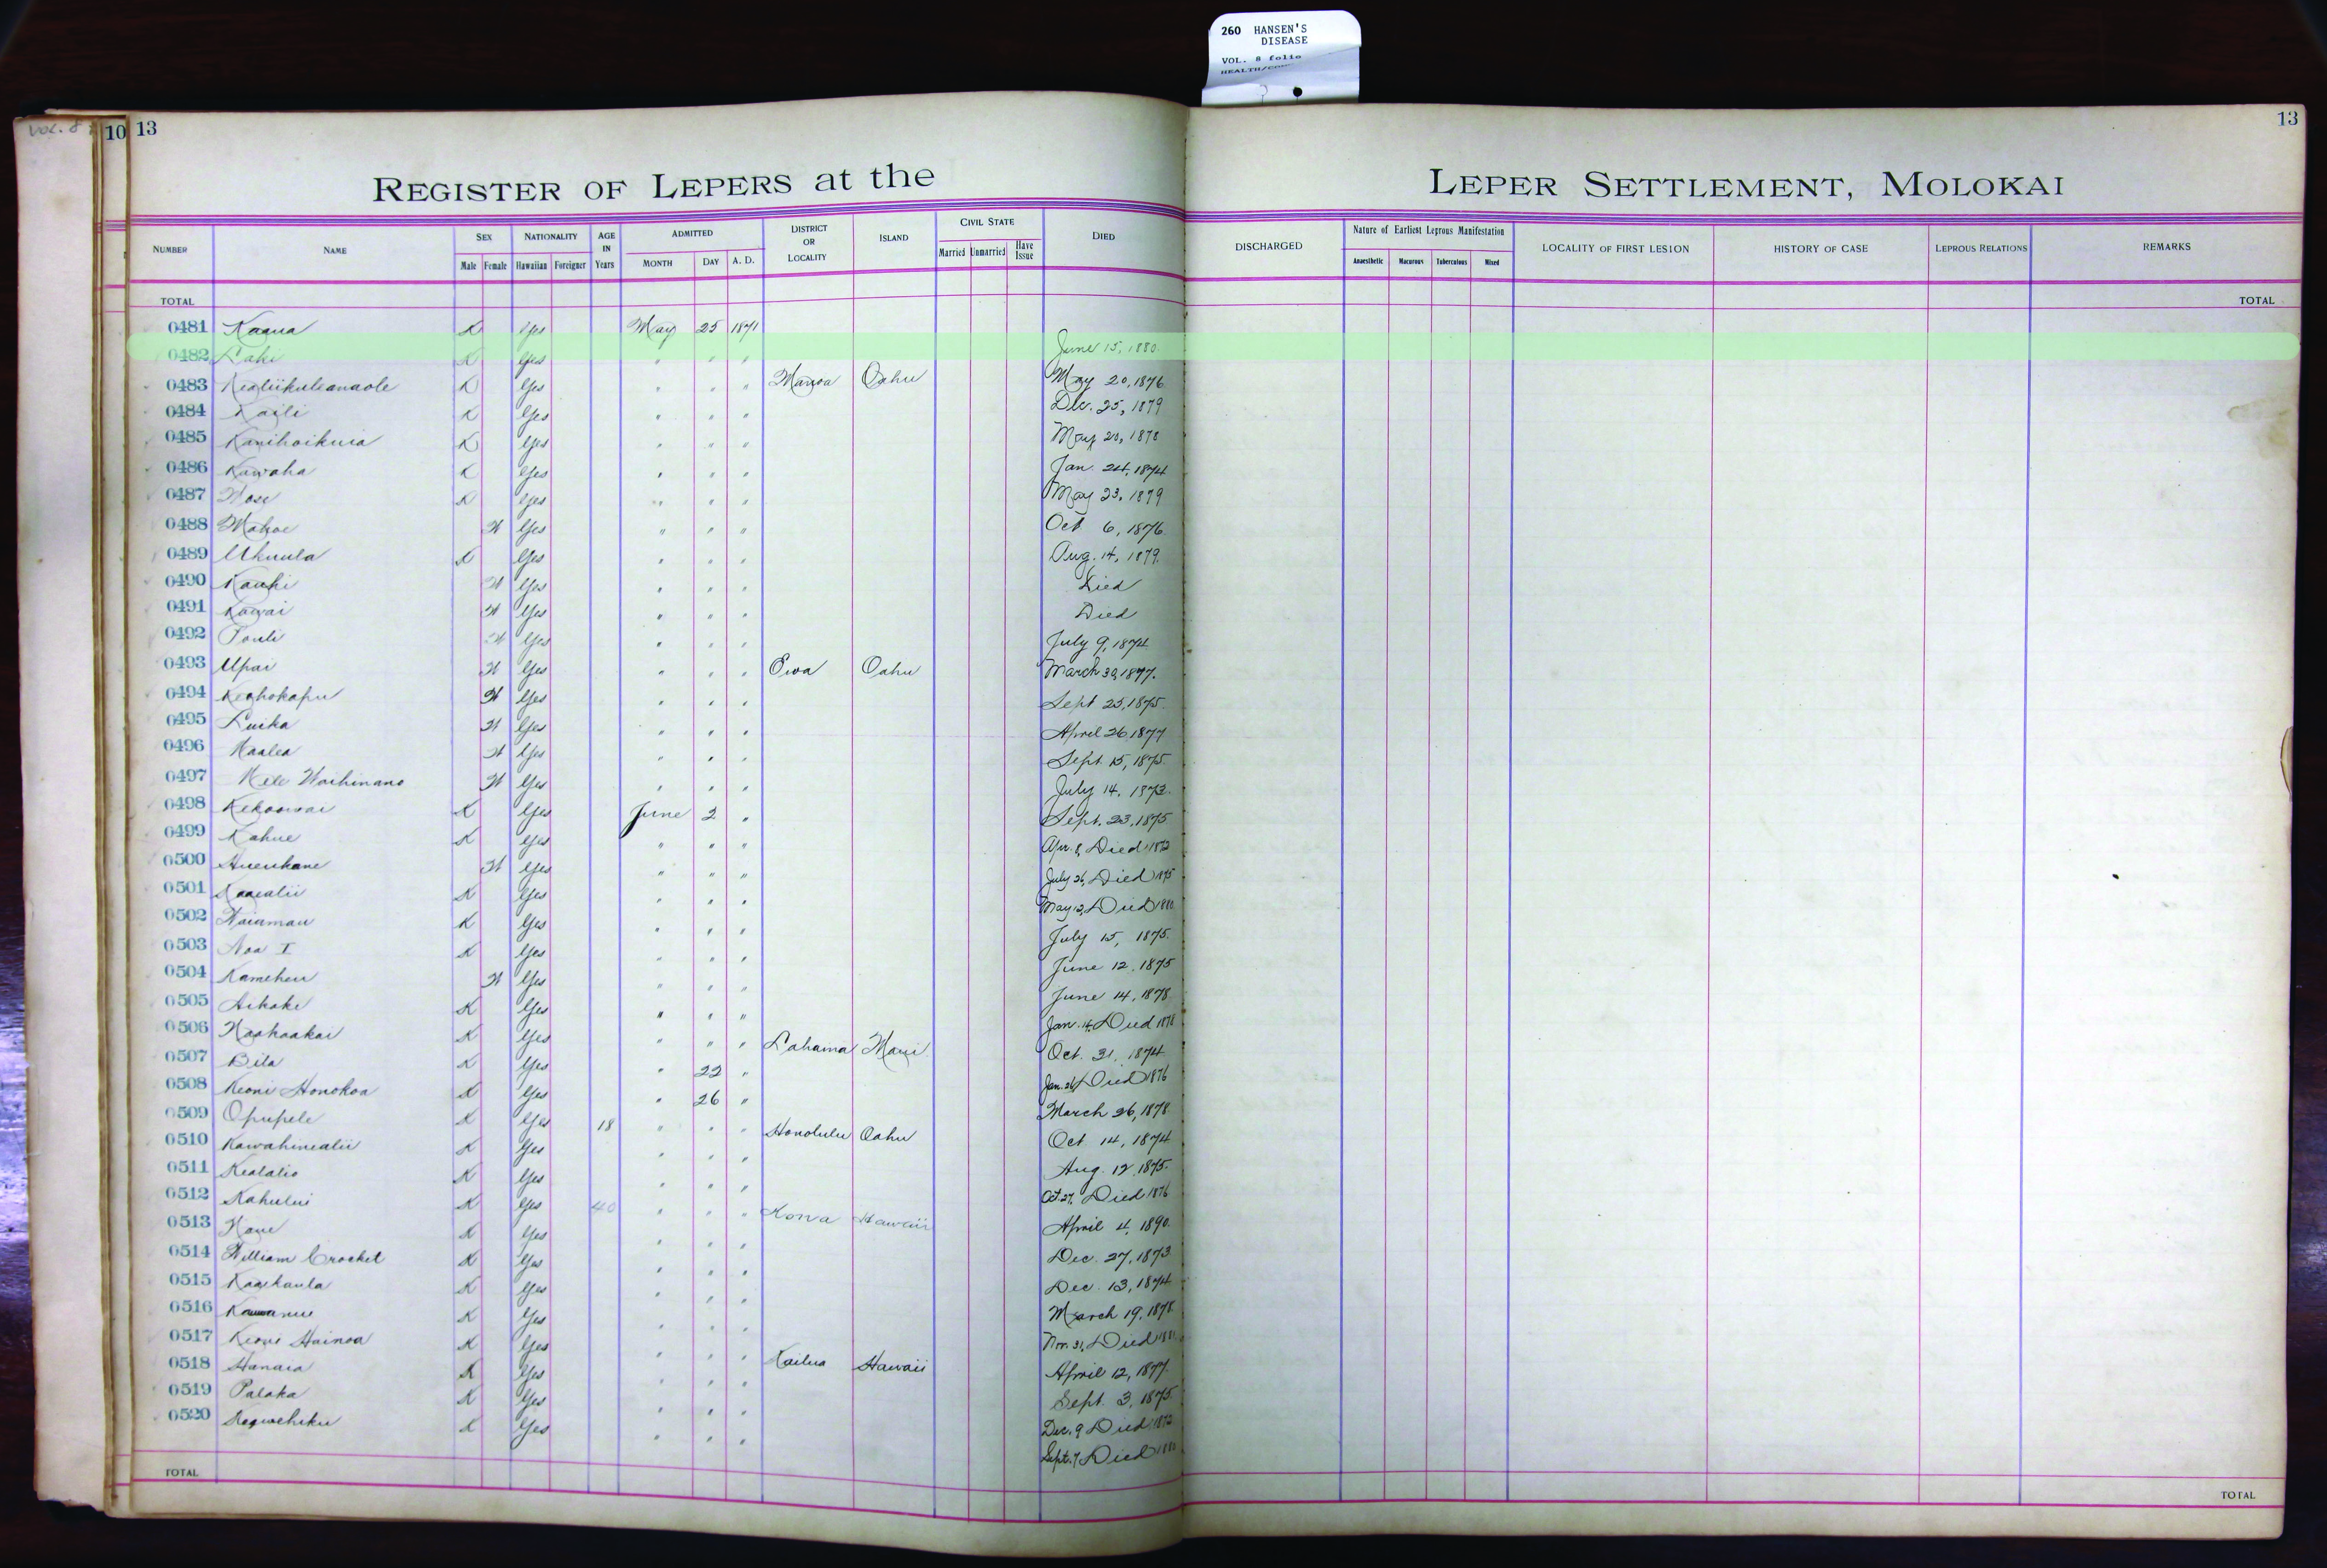 260 HANSEN'S
DISEASE
VOL. 8 folio
VOL. 8
10 13
13
REGISTER OF LEPERS at the
LEPER SETTLEMENT, MOLOKAI
NUMBER NAME SEX Male Female NATIONALITY Hawaiian Foreigner AGE IN Years ADMITTED MONTH DAY A. D. DISTRICT OR LOCALITY ISLAND CIVIL STATE Married Unmarried Have Issue DIED
DISCHARGED Nature of Earliest Leprous Manifestation Anaesthetic Macurous Tuberculous Mixed LOCALITY OF FIRST LESION HISTORY OF CASE LEPROUS RELATIONS REMARKS
TOTAL TOTAL
0481 Kaaua K Yes May 25 1871 June 15, 1880
0482 K Yes " " " May 20, 1876
0483 Kealiikuleanaole K Yes " " " Manoa Oahu Dec. 25, 1879
0484 Kaili K Yes " " " May 20, 1878
0485 Kanihoikuia K Yes " " " Jan. 24, 1874
0486 Kawaha K Yes " " " May 23, 1879
0487 K Yes " " " Oct 6, 1876
0488 Mahoe W Yes " " " Aug. 14, 1879
0489 Ukuula K Yes " " " Died
0490 Kauhi W Yes " " " Died
0491 Kawai W Yes " " " July 9, 1874
0492 Pauli W Yes " " " March 30, 1877.
0493 Upai W Yes " " " Ewa Oahu Sept 25, 1875.
0494 Keohokapu W Yes " " " April 26 1877
0495 Luika W Yes " " " Sept. 15, 1875.
0496 Maalea W Yes " " " July 14, 1873.
0497 Mele Waihinano W Yes " " " Sept. 23, 1875
0498 Kekoowai K Yes June 2 " Apr. 8, Died 1872
0499 Kahue K Yes " " " July 26, Died 1875
0500 W Yes " " " May 12, Died 1880
0501 K Yes " " " July 15, 1875.
0502 Waiamau K Yes " " " June 12. 1875
0503 Noa I K Yes " " " June 14, 1878
0504 Kameheu W Yes " " " Jan. 14, Died 1878
0505 Aikake K Yes " " " Oct. 31, 1874
0506 Naahaakai K Yes " " " Lahaina Maui Jan. 26, Died 1876
0507 Bila K Yes " 22 " March 26, 1878
0508 Keoni Honokoa K Yes " 26 " Oct 14, 1874
0509 Opupele K Yes 18 " " " Honolulu Oahu Aug. 12. 1875.
0510 Kawahinealii K Yes " " " Oct. 27, Died 1876
0511 Kealalio K Yes " " " April 4, 1890.
0512 Kahului K Yes 40 " " " Kona Hawaii Dec. 27, 1873
0513 K Yes " " " Dec. 13, 1874
0514 William Crocket K Yes " " " March 19, 1878
0515 Kaaikaula K Yes " " " Nov. 31, Died
0516 K Yes " " " April 12, 1877.
0517 Keoni Hainoa K Yes " " " Sept. 3, 1875.
0518 Hanaia K Yes " " " Kailua Hawaii Dec. 9 Died 1872
0519 Palaka K Yes " " " Sept. 7 Died
0520 K Yes " " "
TOTAL TOTAL